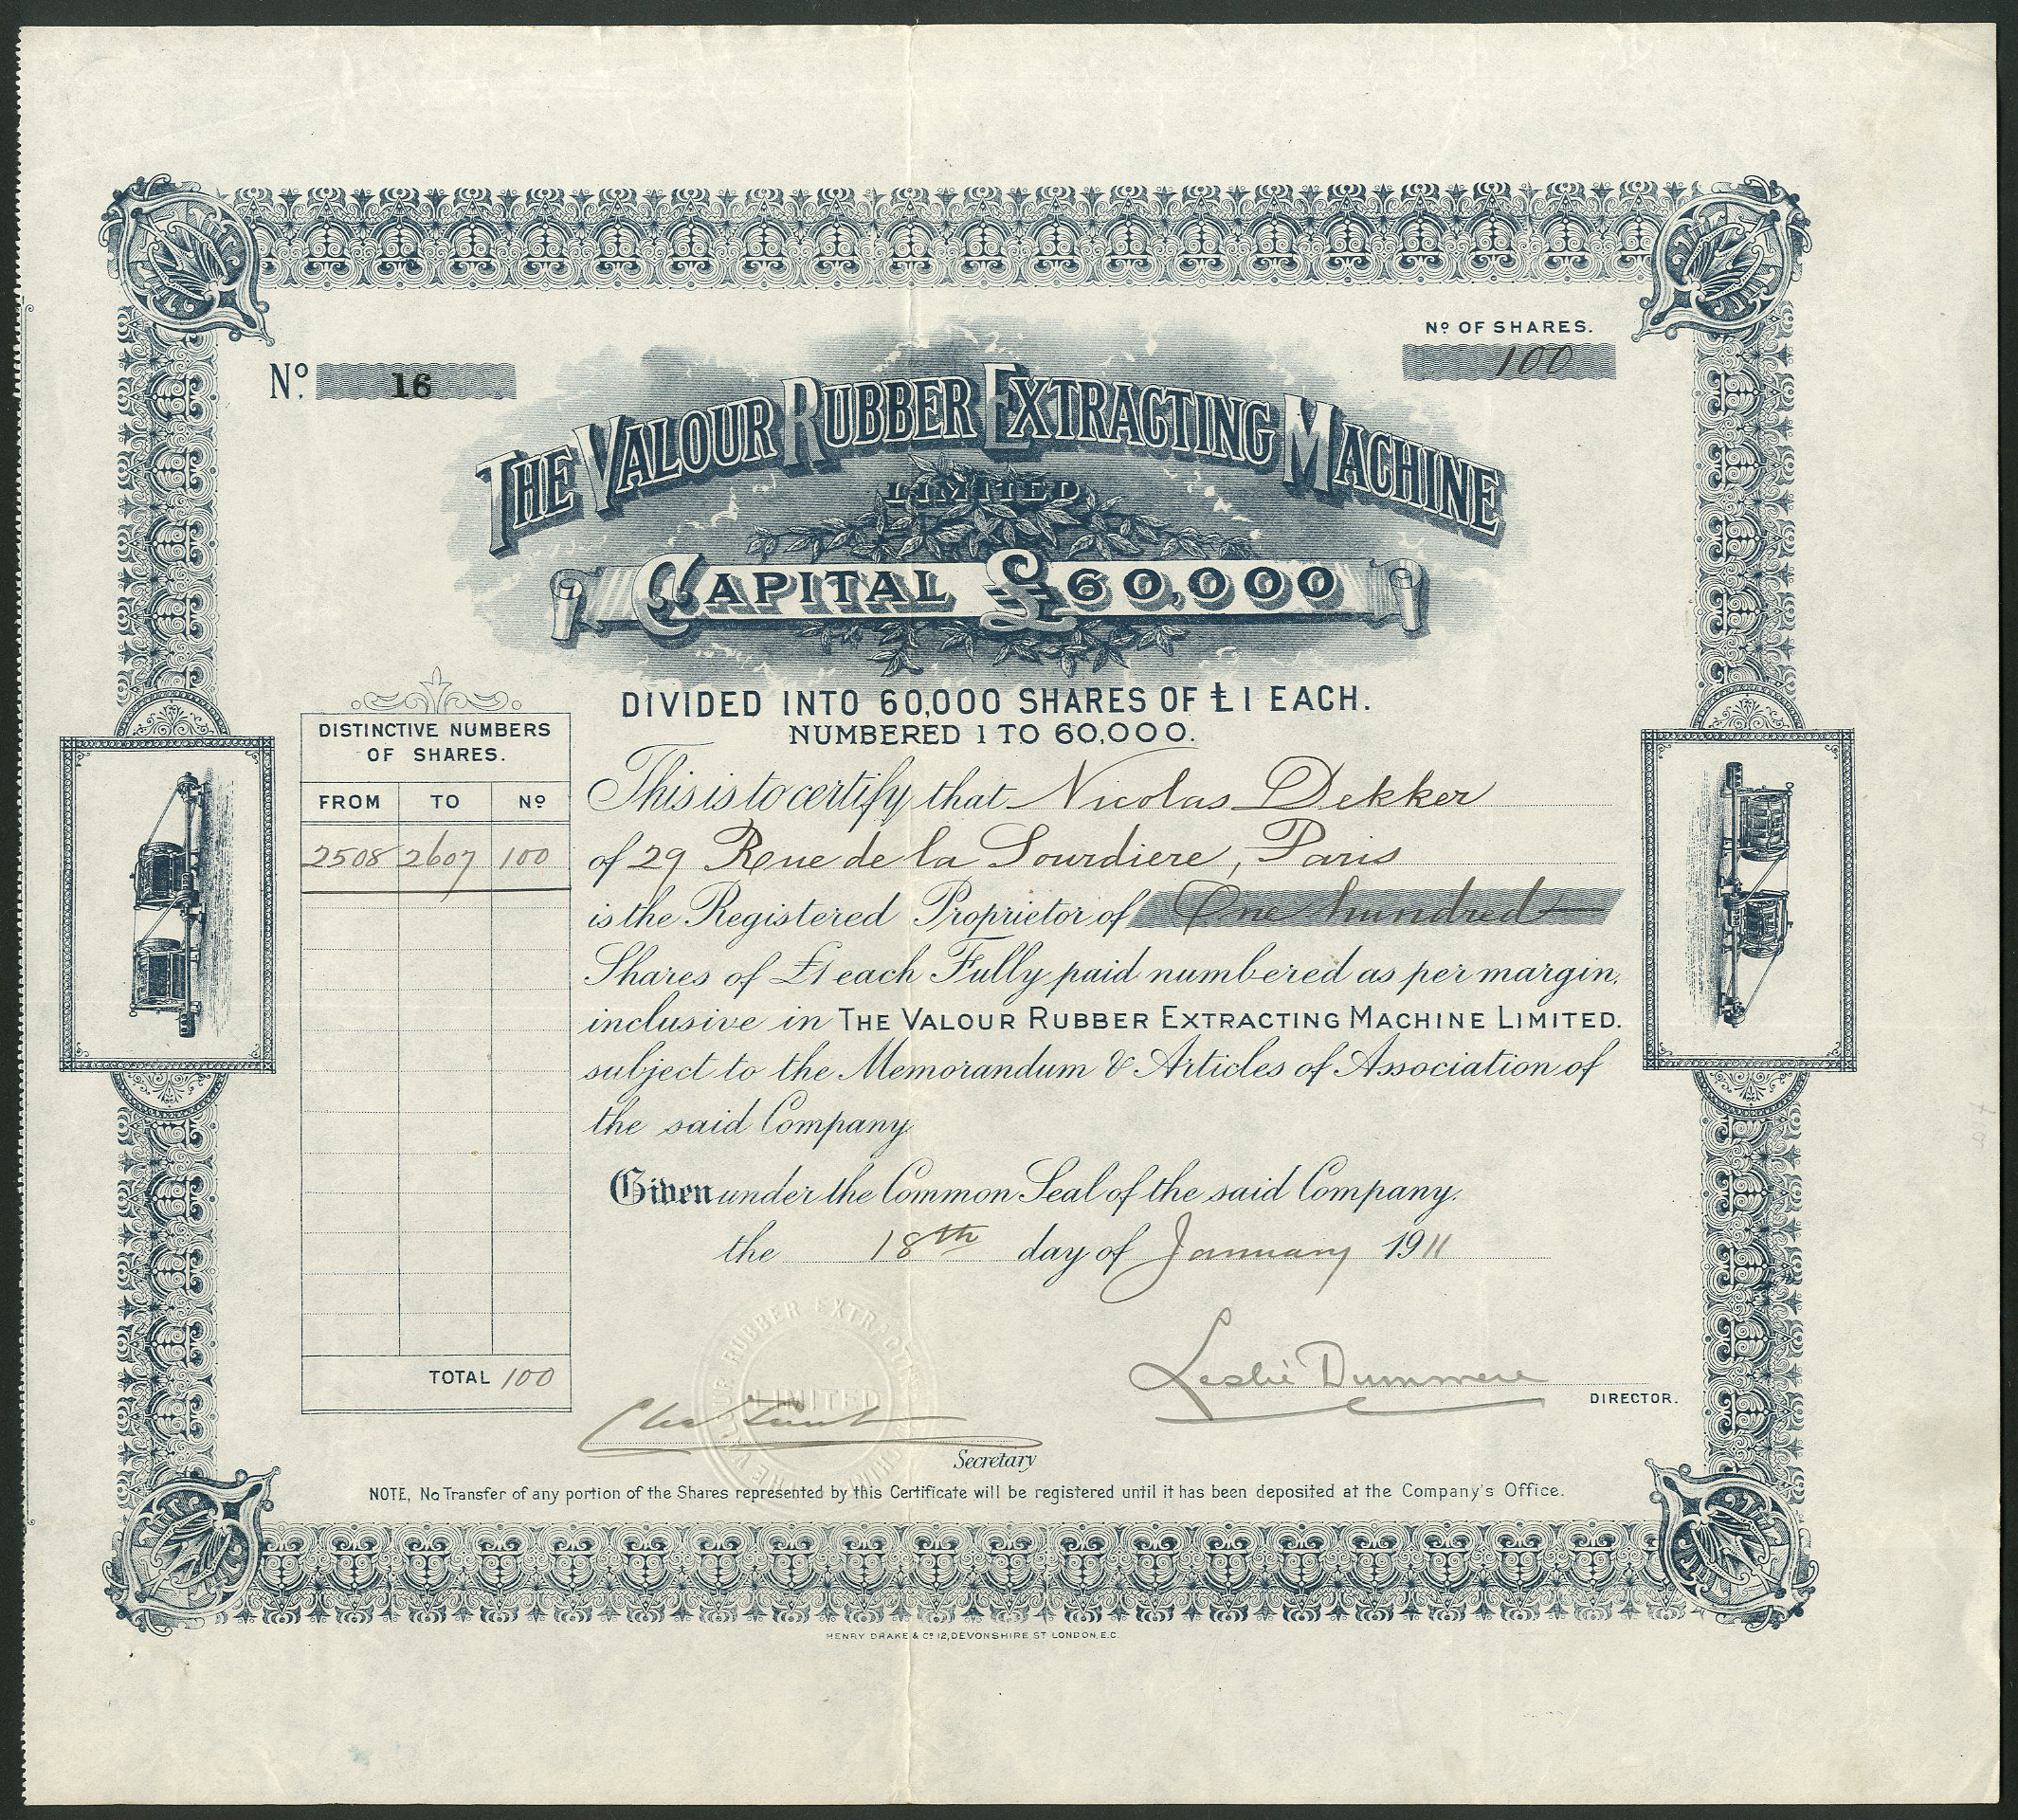 Nº OF SHARES.
Nº. 16
100
THE VALOUR RUBBER EXTRACTING MACHINE
LIMITED
CAPITAL £60,000
DIVIDED INTO 60,000 SHARES OF £1 EACH.
NUMBERED 1 TO 60,000.
DISTINCTIVE NUMBERS
OF SHARES.
FROM TO Nº
2508 2607 100
TOTAL 100
This is to certify that Nicolas Dekker
of 29 Rue de la Sourdiere, Paris
is the Registered Proprietor of One hundred
Shares of £1 each Fully paid numbered as per margin,
inclusive in THE VALOUR RUBBER EXTRACTING MACHINE LIMITED.
subject to the Memorandum & Articles of Association of
the said Company
Given under the Common Seal of the said Company.
the 18th day of January 1911
THE VALOUR RUBBER EXTRACTING MACHINE
LIMITED
Leslie Dummere
DIRECTOR.
Secretary
NOTE, No Transfer of any portion of the Shares represented by this Certificate will be registered until it has been deposited at the Company's Office.
HENRY DRAKE & Cº 12, DEVONSHIRE ST LONDON, E.C.